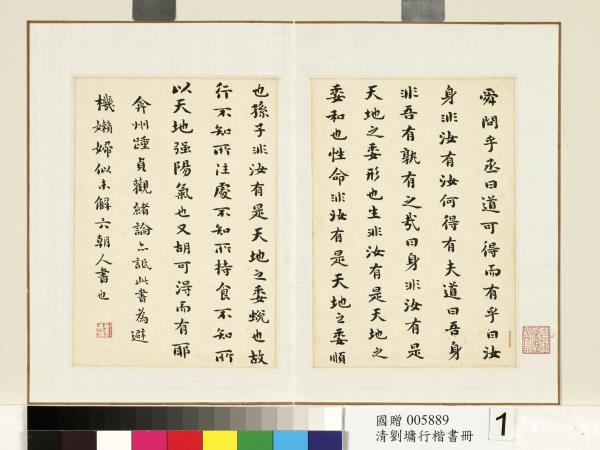 舜問乎丞曰道可得而有乎曰汝
身非汝有汝何得有夫道曰吾身
非吾有孰有之哉曰身非汝有是
天地之委形也生非汝有是天地之
委和也性命非汝有是天地之委順
也孫子非汝有是天地之委蛻也故
行不知所注處不知所持食不知所
以天地強陽氣也又胡可得而有耶
弇州踵貞觀緒論亦詆此書為避
機嬾婦似未解六朝人書也
國贈 005889
清劉墉行楷書冊
1